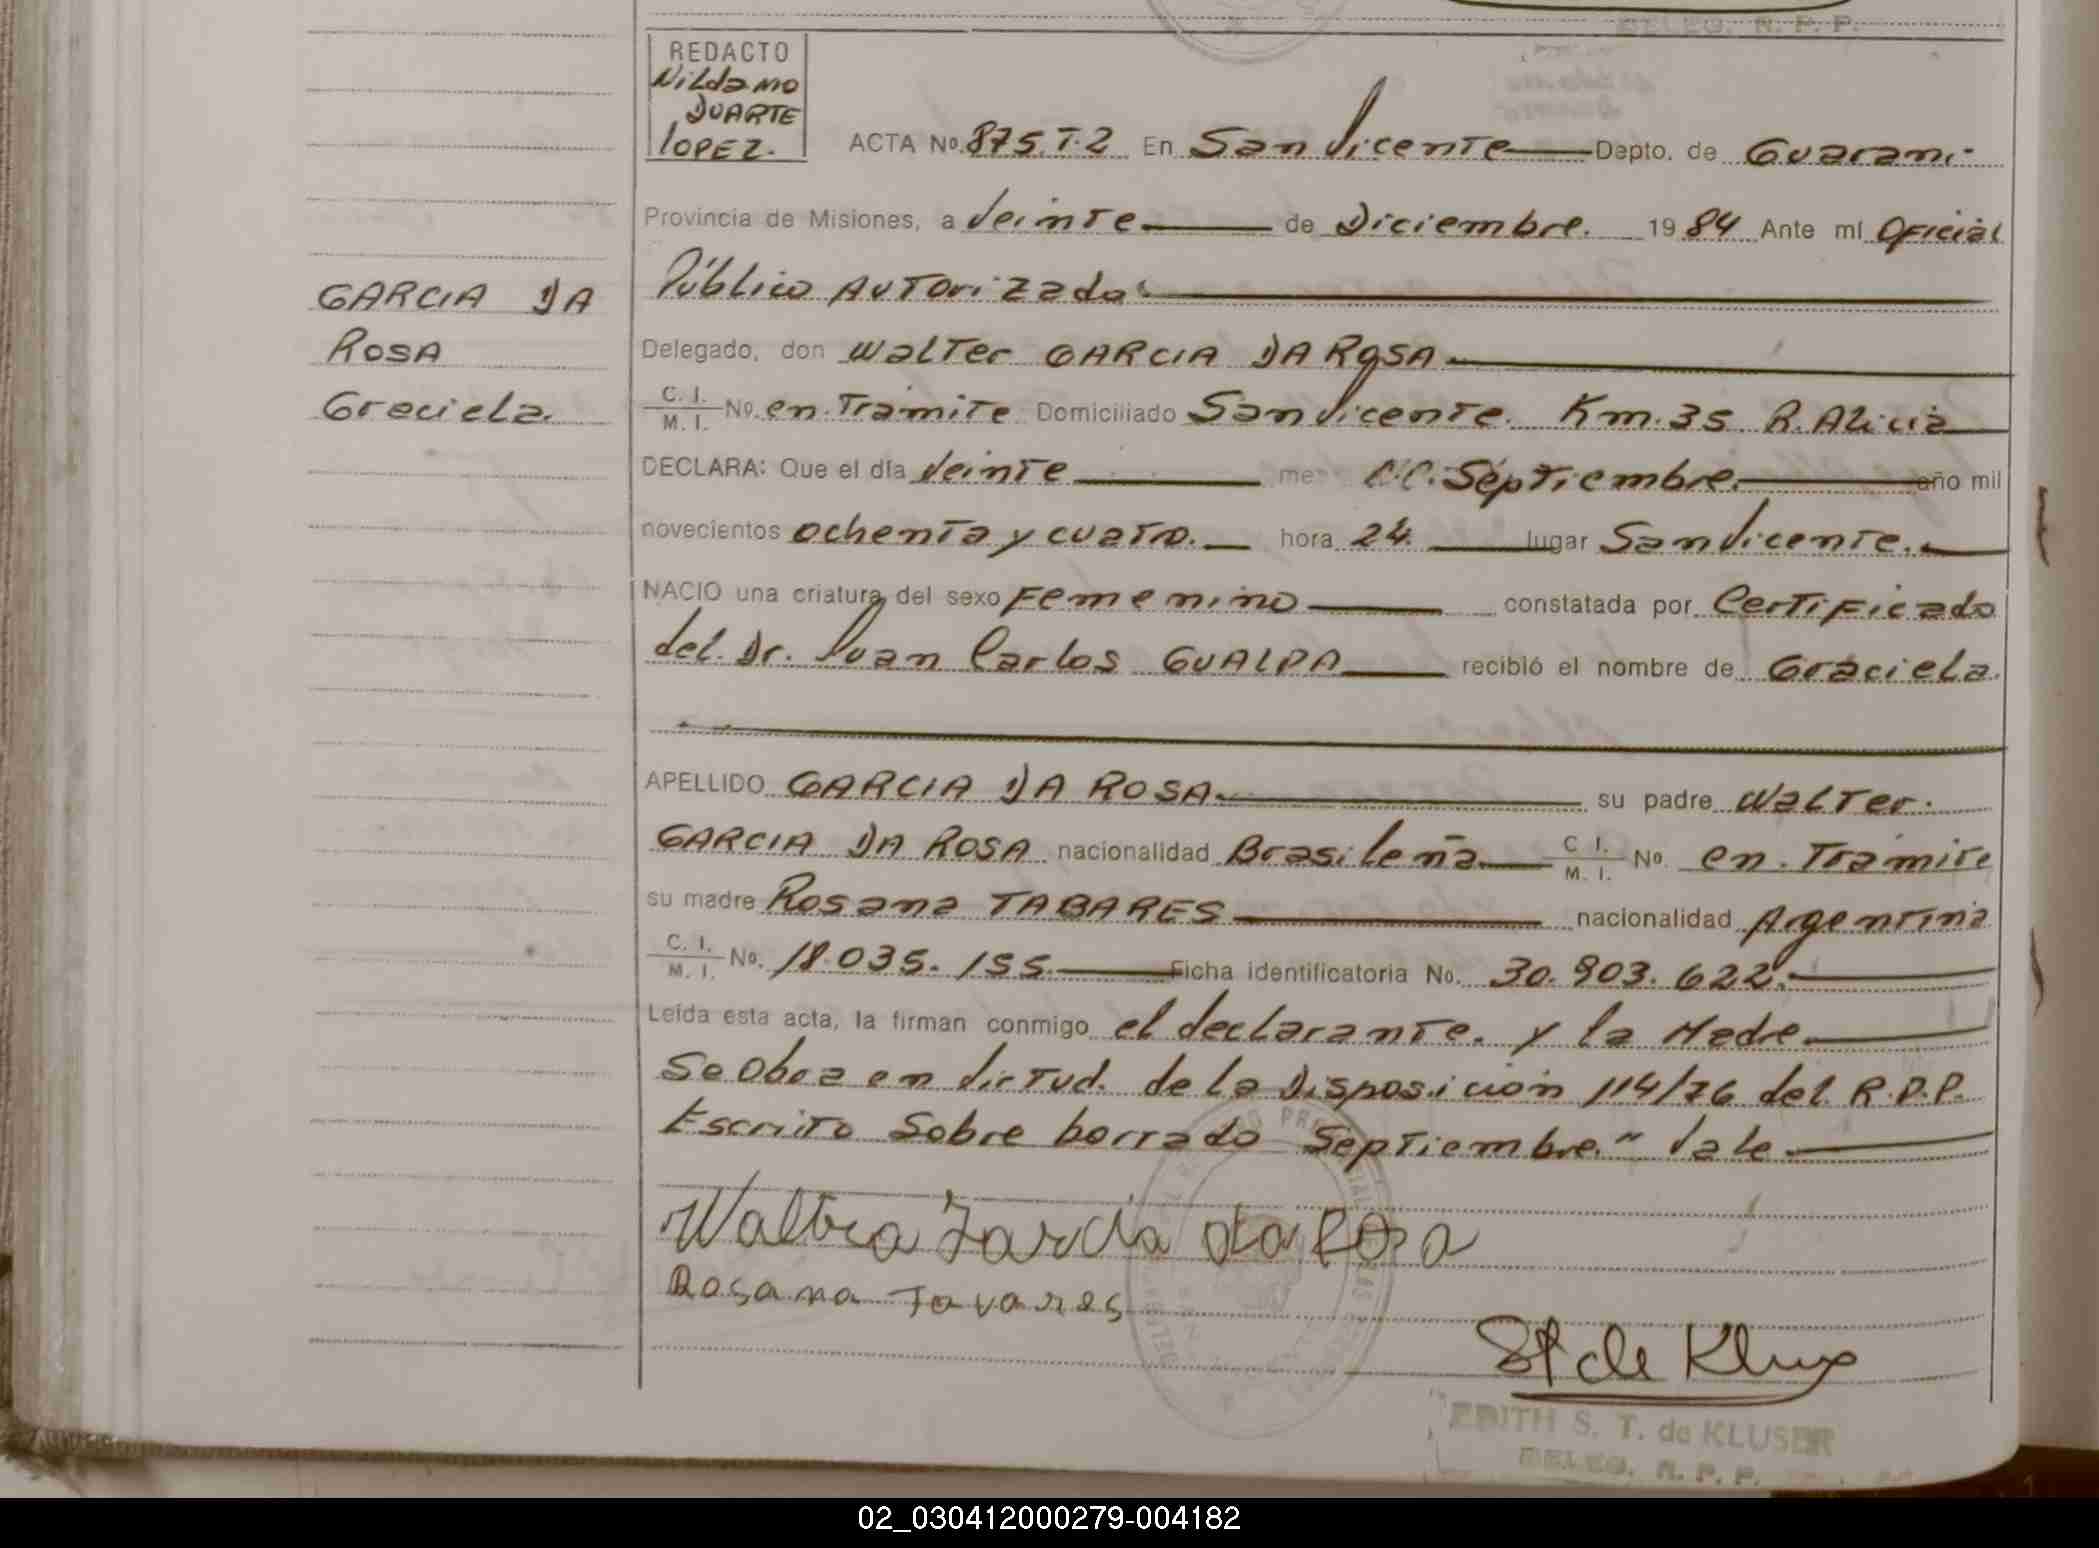 DELEG. R. P. P.
REDACTO
Nildamo
DUARTE
LOPEZ.
ACTA No. 875. T. 2 En San Vicente Depto. de Guarani
Provincia de Misiones, a Veinte de Diciembre. 1984 Ante mí Oficial
Público Autorizado
GARCIA DA
ROSA
Graciela.
Delegado, don Walter GARCIA DA ROSA
C. I. / M. I. No. en Tramite Domiciliado San Vicente. Km. 35 R. Alicia
DECLARA: Que el día Veinte mes Septiembre. año mil
novecientos ochenta y cuatro. hora 24. lugar San Vicente.
NACIO una criatura del sexo Femenino constatada por Certificado
del Dr. Juan Carlos GUALPA recibió el nombre de Graciela.
APELLIDO GARCIA DA ROSA su padre Walter
GARCIA DA ROSA nacionalidad Brasileña C. I. / M. I. No. en Tramite
su madre Rosana TABARES nacionalidad Argentina
C. I. / M. I. No. 18.035.155 Ficha identificatoria No. 30.903.622.
Leída esta acta, la firman conmigo el declarante. y la Madre
Se Obra en Virtud. de la Disposición 114/76 del R.P.P.
Escrito Sobre borrado Septiembre" Vale
Waltra Garcia da Rosa
Rosana Tavares
St de Klus
EDITH S. T. de KLUSER
DELEG. R. P. P.
02_030412000279-004182